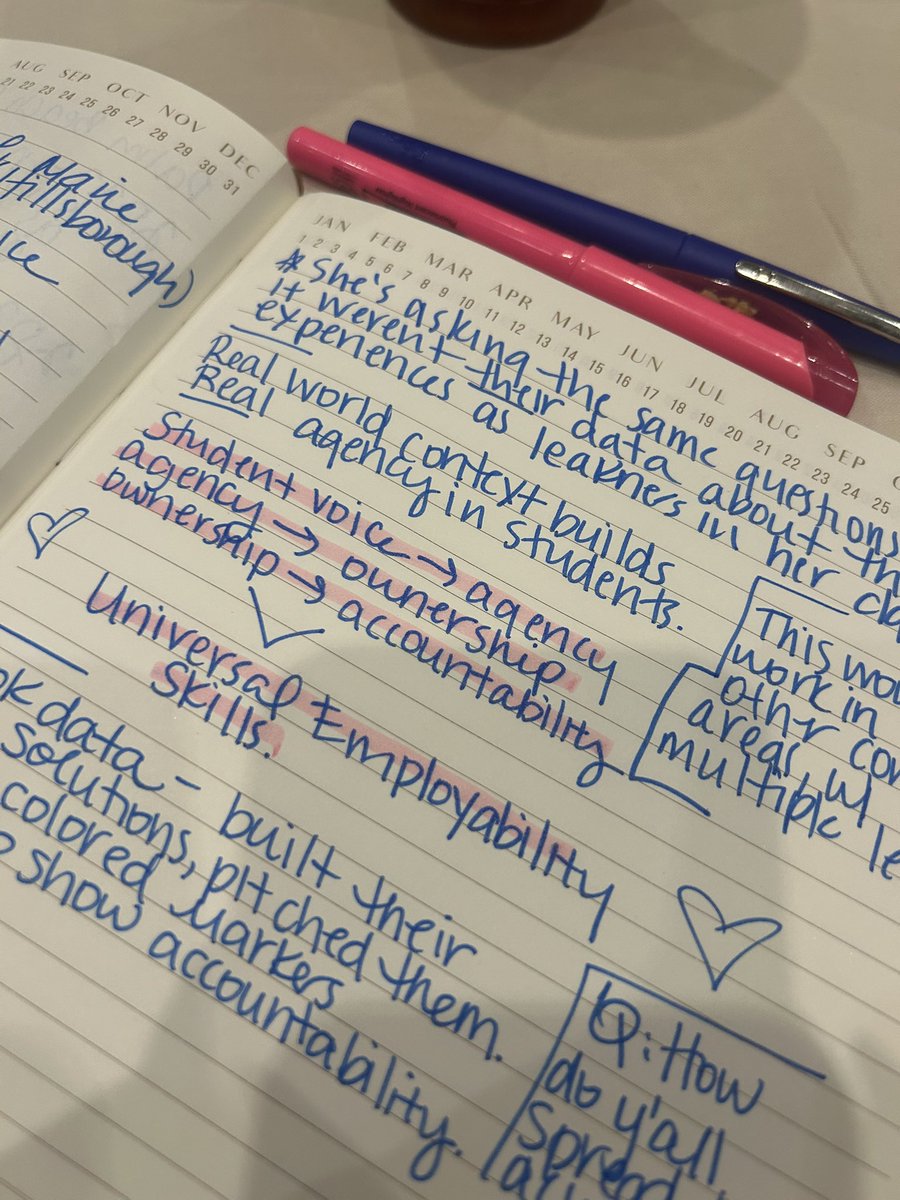 AUG SEP OCT NOV DEC
21 22 23 24 25 26 27 28 29 30 31
Marie
Hillsborough)
JAN FEB MAR APR MAY JUN JUL AUG SEP
1 2 3 4 5 6 7 8 9 10 11 12 13 14 15 16 17 18 19 20 21 22 23 24 25
*She's asking the same questions
it weren't their data about
experiences as learners in her
Real world context builds
Real agency in students.
Student voice → agency
agency → ownership
ownership → accountability
Universal Employability
Skills.
This
work in
other
areas w/
multiple
data - built their
solutions, pitched them.
colored markers
show accountability.
Q: How
do y'all
spread